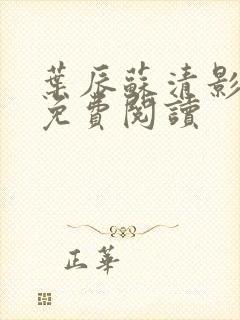 葉辰蘇清影
免費閱讀
正華